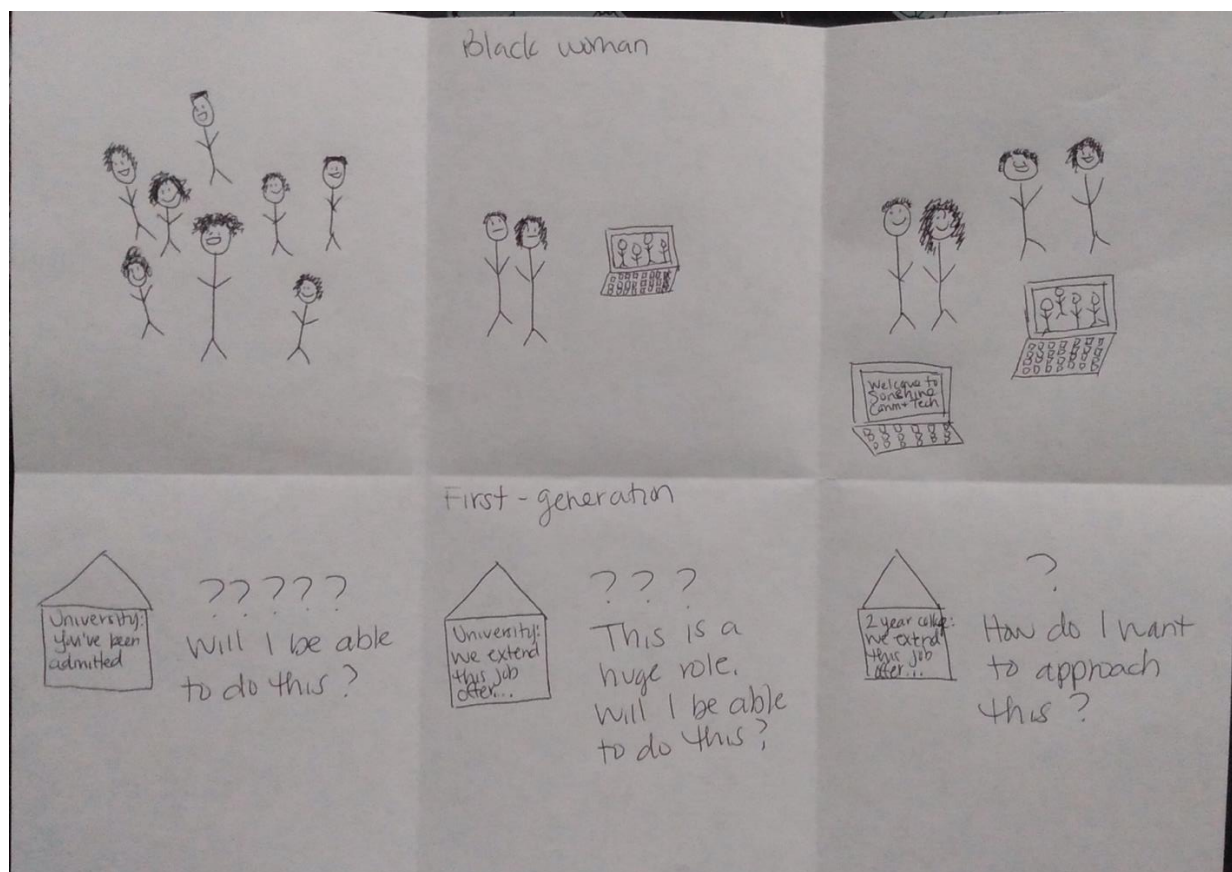 Black woman
Welcome to
Sunshine
Comm + Tech
First - generation
University:
You've been
admitted
?????
Will I be able
to do this?
University:
We extend
this job
offer...
???
This is a
huge role.
Will I be able
to do this?
2 year college:
We extend
this job
offer...
?
How do I want
to approach
this?